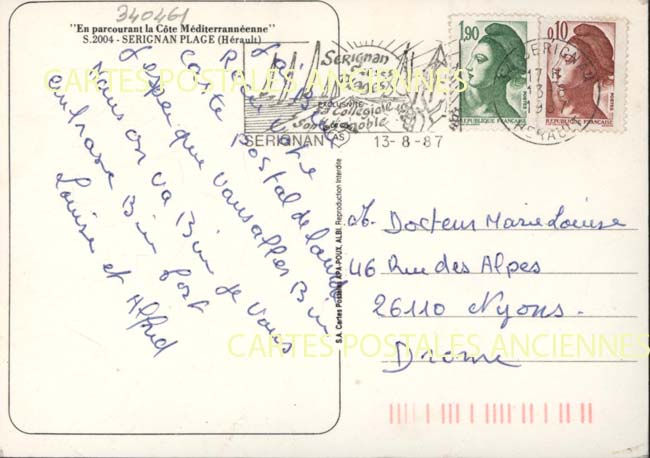 340461
"En parcourant la Côte Méditerrannéenne"
S.2004 - SERIGNAN PLAGE (Hérault)
J'ai Bien
Reçu votre
carte postal de
J'espère que vous allez Bien
nous on va Bien je vous
embrasse Bien fort
Louise et Alfred
Serignan
Plage
EXCLUSIVITÉ
sa Collégiale
son Vignoble
SERIGNAN
13-8-87
SERIGNAN
17 H
13-8
1987
HERAULT
1,90
REPUBLIQUE FRANÇAISE
POSTES
0,10
REPUBLIQUE FRANÇAISE
POSTES
S.A. Cartes Postales APA-POUX, ALBI. Reproduction Interdite
Docteur Marie Louise
46 Rue des Alpes
26110 Nyons.
Drome
CARTES POSTALES ANCIENNES
CARTES POSTALES ANCIENNES